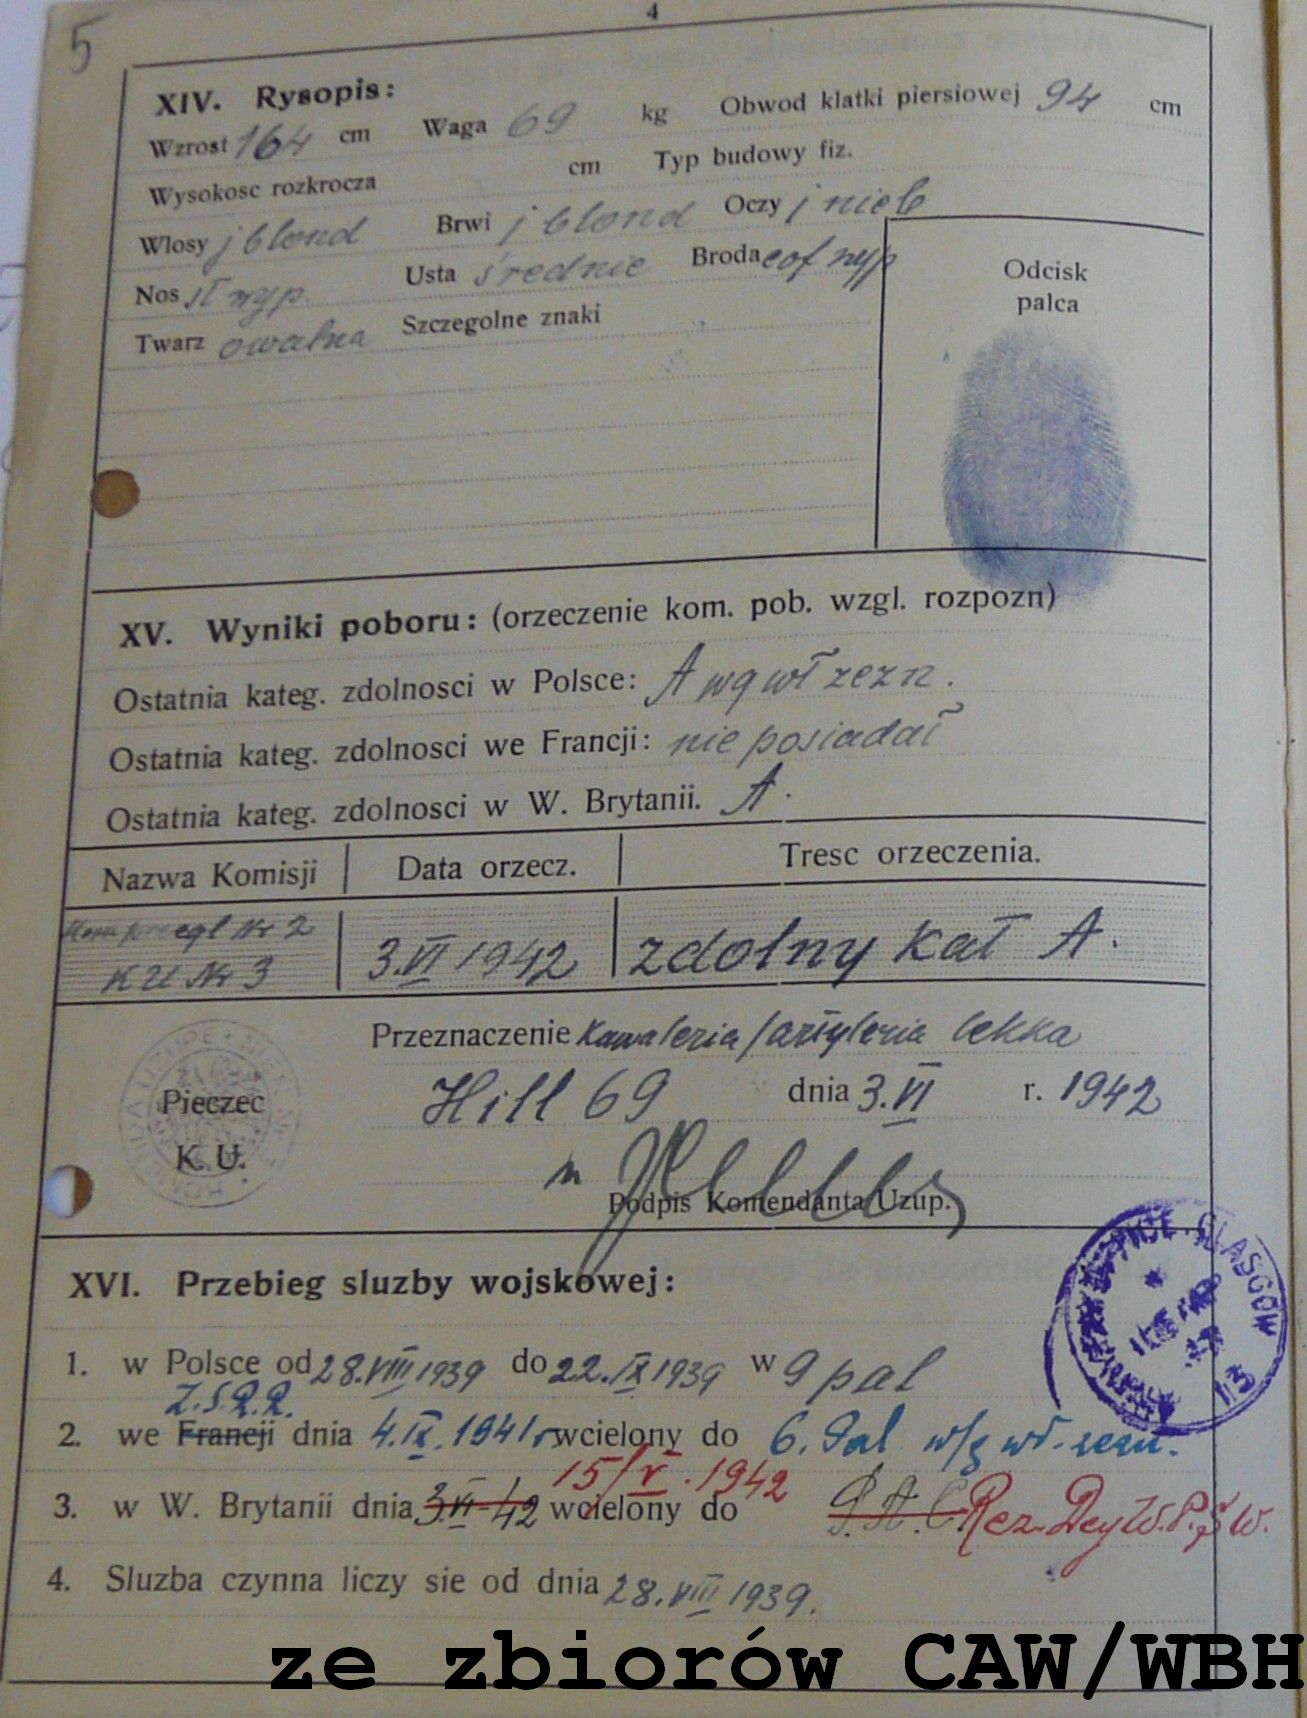 5
4
XIV. Rysopis:
Wzrost 164 cm Waga 69 kg Obwod klatki piersiowej 94 cm
Wysokosc rozkrocza cm Typ budowy fiz.
Wlosy j blond Brwi j blond Oczy j nieb
Nos śr wyp. Usta średnie Broda cof wyp
Twarz owalna Szczegolne znaki
Odcisk
palca
XV. Wyniki poboru: (orzeczenie kom. pob. wzgl. rozpozn)
Ostatnia kateg. zdolnosci w Polsce: A wg wł zezn.
Ostatnia kateg. zdolnosci we Francji: nie posiadał
Ostatnia kateg. zdolnosci w W. Brytanii. A.
Nazwa Komisji Data orzecz. Tresc orzeczenia.
przegl Nr 2
KU Nr 3 3.VI 1942 zdolny kat A.
Przeznaczenie Kawaleria/artyleria lekka
Hill 69 dnia 3.VI r. 1942
Pieczec
K. U.
Podpis Komendanta Uzup.
XVI. Przebieg sluzby wojskowej:
GLASGOW
1. w Polsce od 28.VIII 1939 do 22.IX 1939 w 9 pal
Z.S.R.R.
2. we Francji dnia 4.IX.1941 r. wcielony do 6. Dal w/g wł. zezn.
15/V.1942
3. w W. Brytanii dnia 3.VI-42 wcielony do P.A.C. Rez. Dcy W.P.Ś.W.
4. Sluzba czynna liczy sie od dnia 28.VIII 1939.
ze zbiorów CAW/WBH